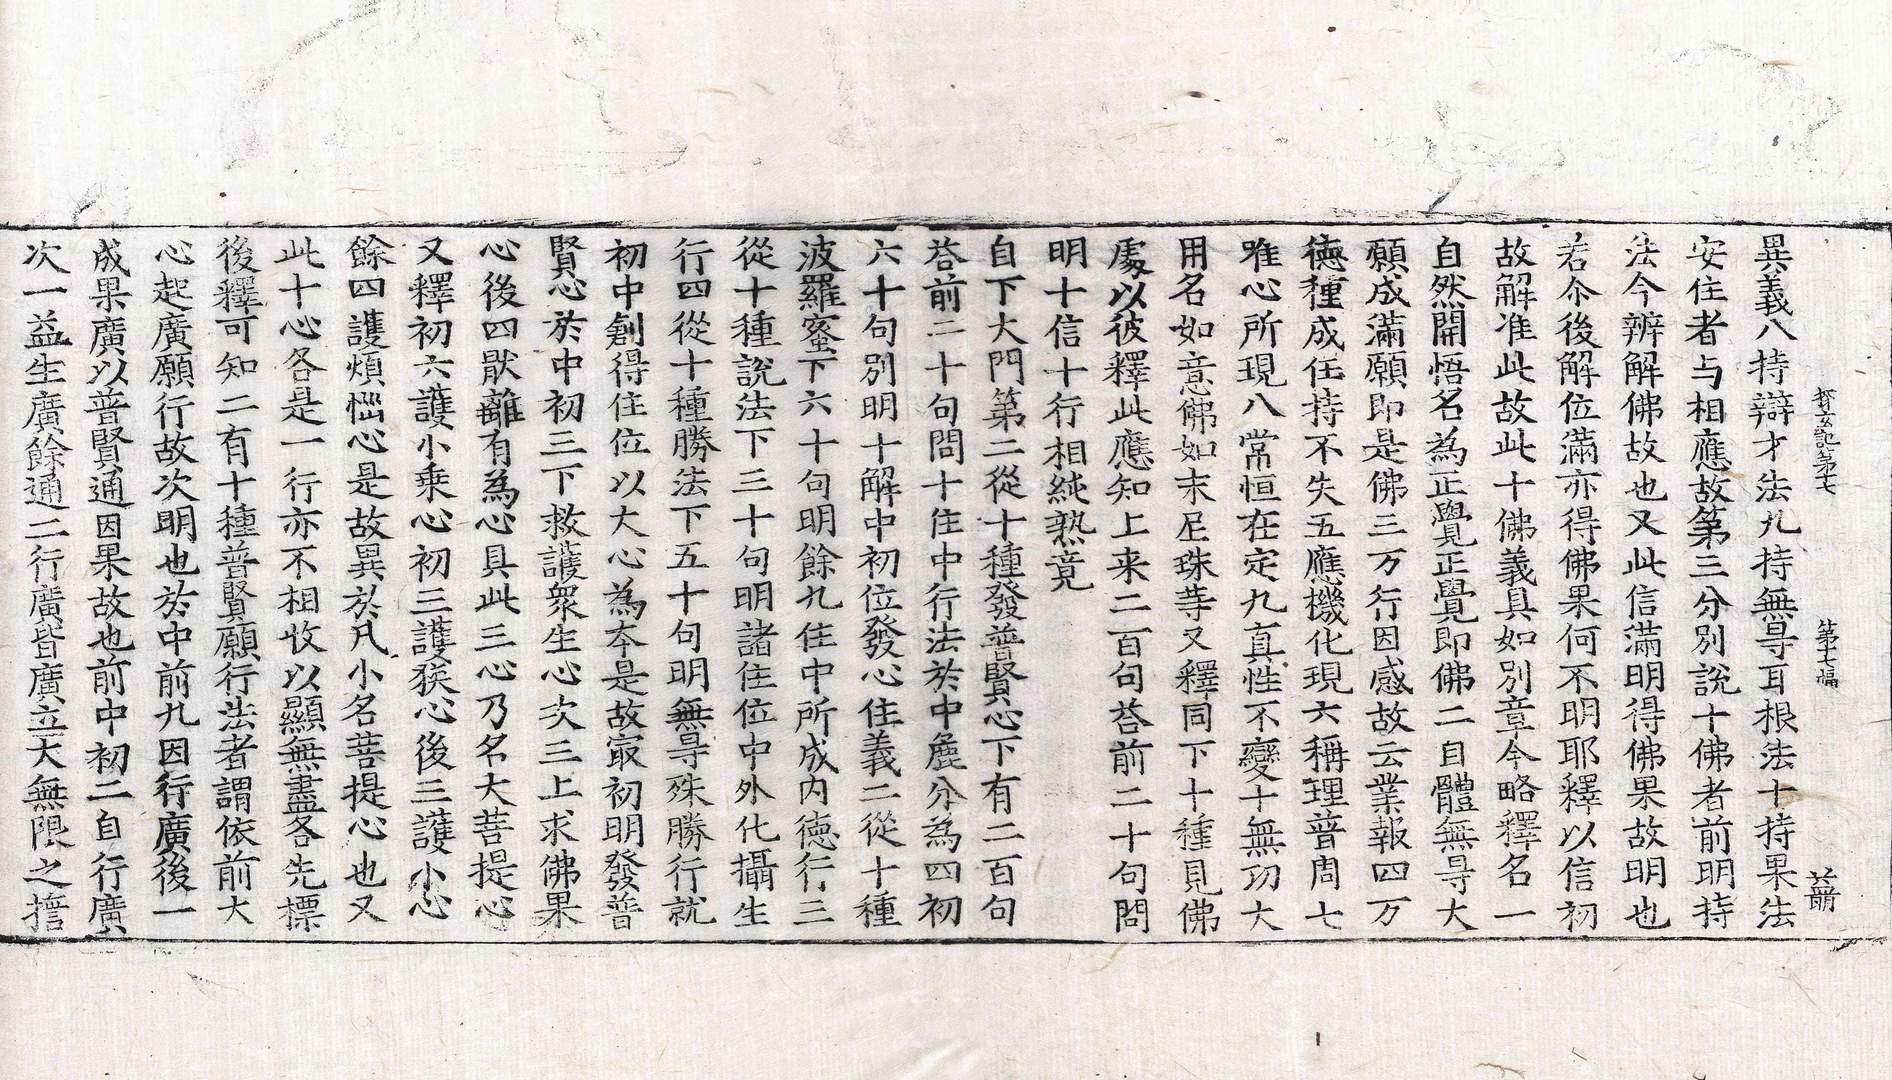 探玄記第十七 第十七幅 萠
異義八持辯才法九持無㝵耳根法十持果法
安住者与相應故第三分別說十佛者前明持
法今辨解佛故也又此信滿明得佛果故明也
若尒後解位滿亦得佛果何不明耶釋以信初
故解准此故此十佛義具如別章今略釋名一
自然開悟名為正覺正覺即佛二自體無㝵大
願成滿願即是佛三万行因感故云業報四万
德種成任持不失五應機化現六稱理普周七
唯心所現八常恒在定九真性不變十無功大
用名如意佛如末尼珠䓁又釋同下十種見佛
處以彼釋此應知上来二百句荅前二十句問
明十信十行相純熟竟
自下大門第二從十種發普賢心下有二百句
荅前二十句問十住中行法於中麁分為四初
六十句別明十解中初位發心住義二從十種
波羅蜜下六十句明餘九住中所成内德行三
從十種說法下三十句明諸住位中外化攝生
行四從十種勝法下五十句明無㝵殊勝行就
初中創得住位以大心為夲是故㝡初明發普
賢心於中初三下救護衆生心次三上求佛果
心後四猒離有為心具此三心乃名大菩提心
又釋初六護小乗心初三護狹心後三護小心
餘四護煩惱心是故異於凡小名菩提心也又
此十心各是一行亦不相收以顯無盡各先標
後釋可知二有十種普賢願行法者謂依前大
心起廣願行故次明也於中前九因行廣後一
成果廣以普賢通因果故也前中初二自行廣
次一益生廣餘通二行廣皆廣立大無限之擔